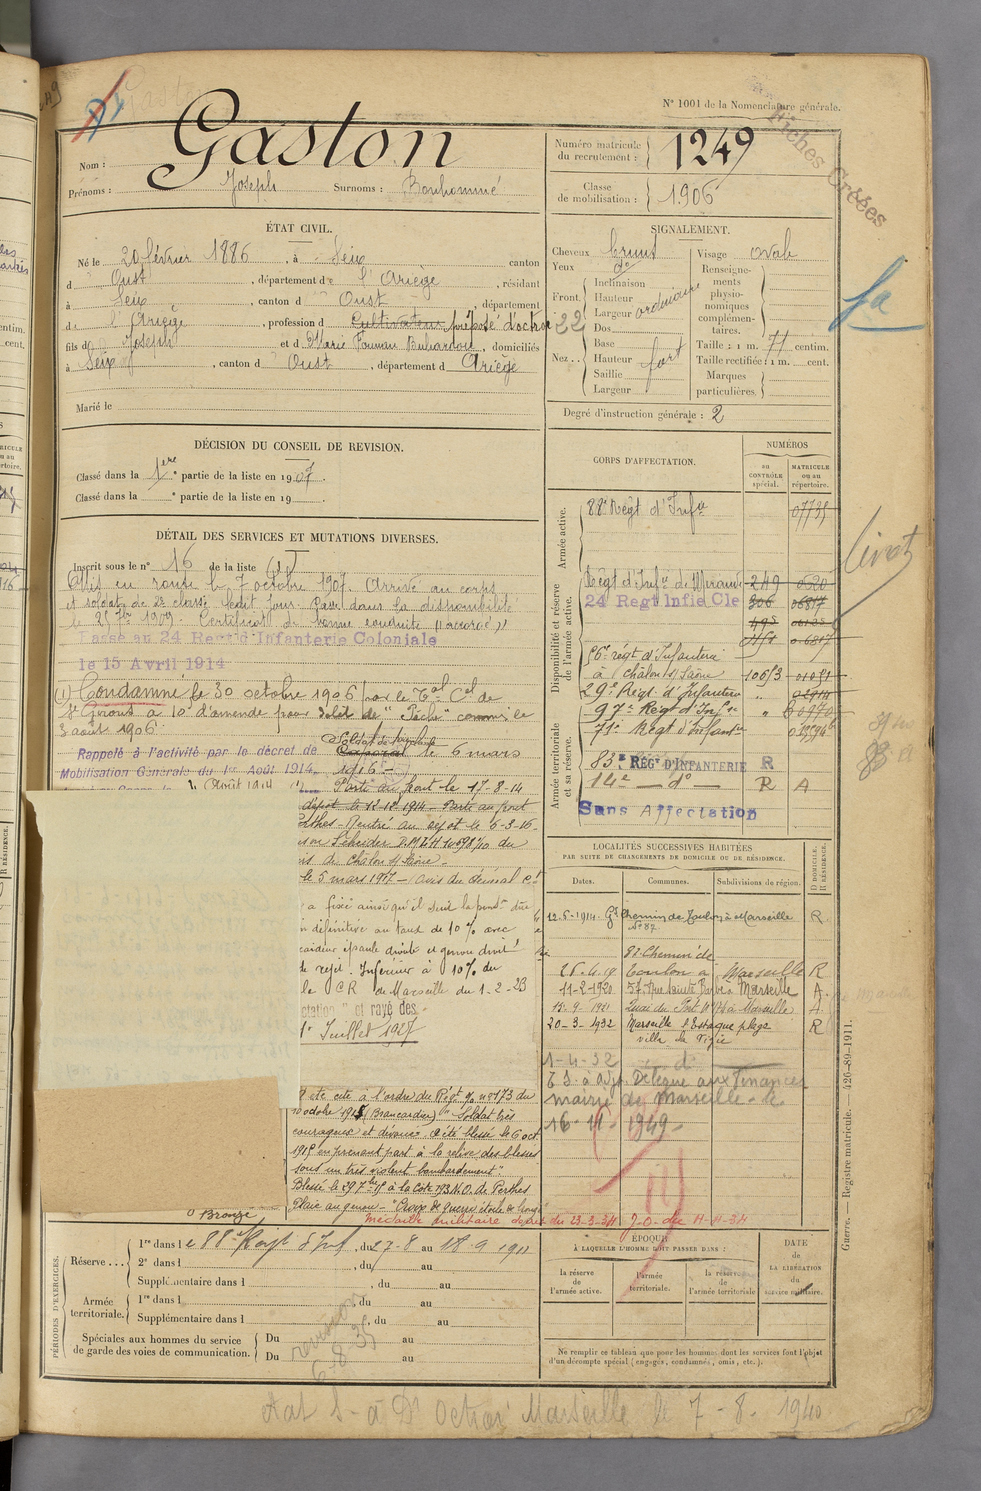 N° 1001 de la Nomenclature générale.
Fiches Créées
Nom : Gaston
Prénoms : Joseph Surnoms : Bonhommé
Numéro matricule du recrutement : 1249
Classe de mobilisation : 1906
ÉTAT CIVIL.
Né le 20 février 1886, à Seix canton
d Oust, département de l'Ariège, résidant
à Seix, canton d Oust, département
de l'Ariège, profession d Cultivateur préposé d'octroi 22
fils de Joseph et d Marie, domiciliés
à Seix, canton d Oust, département d Ariège
Marié le
SIGNALEMENT.
Cheveux bruns
Yeux do
Front. Inclinaison
Hauteur ordinaire
Largeur
Dos
Nez . . Base
Hauteur fort
Saillie
Largeur
Visage ovale
Renseignements physionomiques complémentaires.
Taille : 1 m. 77 centim.
Taille rectifiée : 1 m. cent.
Marques particulières.
Degré d'instruction générale : 2
DÉCISION DU CONSEIL DE REVISION.
Classé dans la 1ère partie de la liste en 1907.
Classé dans la e partie de la liste en 19
DÉTAIL DES SERVICES ET MUTATIONS DIVERSES.
Inscrit sous le n° 16 de la liste (1)
Mis en route le 7 octobre 1907. Arrivé au corps
et soldat de 2e classe ledit jour. Passé dans la disponibilité
le 25 7bre 1909. Certificat de bonne conduite "accordé"
Passé au 24 Regt d'Infanterie Coloniale
le 15 Avril 1914
(1) Condamné le 30 octobre 1906 par le Tal Cel de
St Girons à 10f d'amende pour délit de "Pêche" commis le
3 août 1906
Rappelé à l'activité par le décret de
Mobilisation Générale du 1er Août 1914.
Caporal le 6 mars
1916
Août 1914 Parti au front le 17-8-14
dépôt le 12-10-1914 - Parti au front
Perthes - Rentré au dépôt le 6-3-16
du
de Châlon s/ Saône -
le 5 mars 1917 - avis du Général Ct
a fixé ainsi qu'il suit la due
définitive au taux de 10 % avec
raideur épaule droite et genou droit
de rejet. Inférieur à 10% du
le CR de Marseille du 1-2-23
ctation" et rayé des
1er Juillet 1927
A été cité à l'ordre du Régt n° 173 du
10 octobre 1915 (Brancardier) "Soldat très
courageux et dévoué. A été blessé le 6 oct
1915 en prenant part à la relève des blessés
sous un très violent bombardement".
Blessé le 29 7bre 15 à la Cote 193 N.O. de Perthes
Plaie au genou - "Croix de guerre étoile de bronze
Bronze
Médaille militaire décret du 23-3-34 J.O. du 11-4-34
CORPS D'AFFECTATION.
NUMÉROS
au CONTRÔLE spécial.
MATRICULE ou au répertoire.
Armée active.
88e Régt d'Infie 07735
Disponibilité et réserve de l'armée active.
Régt d'Infie de Mirande 249 0520
24 Regt Infie Cle 306 06817
495
1151 06817
56e régt d'Infanterie
à Châlon s/ Saône 10653 01051
29e Régt d'Infanterie " 02914
97e Régt d'Infie "
71e Régt d'Infanterie
Armée territoriale et sa réserve.
83e RÉGt D'INFANTERIE R
14e - do - R A
Sans Affectation
LOCALITÉS SUCCESSIVES HABITÉES
PAR SUITE DE CHANGEMENTS DE DOMICILE OU DE RÉSIDENCE.
Dates. Communes. Subdivisions de région. D DOMICILE. R RÉSIDENCE.
12-6-1914 Gd Chemin de Toulon à Marseille R
N° 87
82 Chemin de
25.4.19 Toulon à Marseille R
11-2-1920 57 Rue Sainte à Marseille A
15-9-1921 Quai du Port à Marseille A
20-3-1932 Marseille l'Estaque plage R
villa la Vigie
1-4-32 do
Délégué aux Finances
mairie de Marseille - le
16-11-1949-
PÉRIODES D'EXERCICES.
Réserve . . . 1re dans le 88e Régt d'Inf, du 27-8 au 18-9 1911
2e dans l, du au
Supplémentaire dans l, du au
Armée territoriale. 1re dans l, du au
Supplémentaire dans l, du au
Spéciales aux hommes du service de garde des voies de communication. Du au
Du au
revision
6-8-35
ÉPOQUE
À LAQUELLE L'HOMME DOIT PASSER DANS :
la réserve de l'armée active.
l'armée territoriale.
la réserve de l'armée territoriale
DATE de LA LIBÉRATION du service militaire.
Ne remplir ce tableau que pour les hommes dont les services font l'objet
d'un décompte spécial (engagés, condamnés, omis, etc.).
Guerre. — Registre matricule. — 426-89-1911.
Octroi Marseille le 7-8-1940